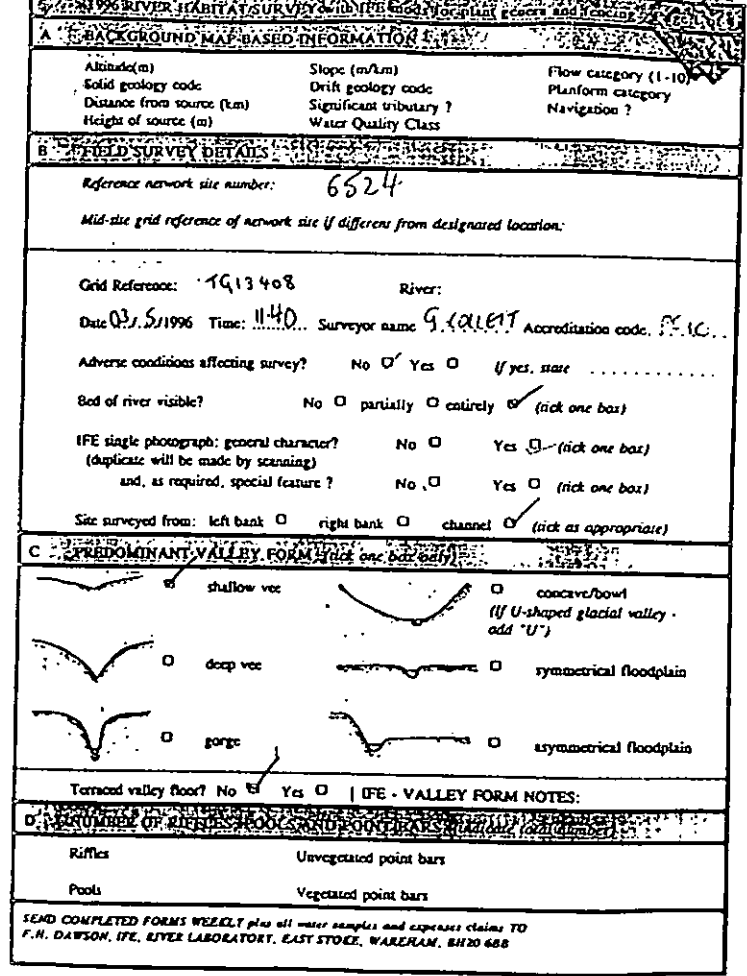 1996 RIVER HABITAT SURVEY with IFE mods for plant genera and fencing
A BACKGROUND MAP-BASED INFORMATION
Altitude(m) Slope (m/km) Flow category (1-10)
Solid geology code Drift geology code Planform category
Distance from source (km) Significant tributary ? Navigation ?
Height of source (m) Water Quality Class
B FIELD SURVEY DETAILS
Reference network site number: 6524
Mid-site grid reference of network site if different from designated location:
Grid Reference: TG13408 River:
Date 03/5/1996 Time: 11.40 Surveyor name G. Accreditation code.
Adverse conditions affecting survey? No Yes If yes, state ............
Bed of river visible? No partially entirely (tick one box)
IFE single photograph: general character? No Yes (tick one box)
(duplicate will be made by scanning)
and, as required, special feature ? No Yes (tick one box)
Site surveyed from: left bank right bank channel (tick as appropriate)
C PREDOMINANT VALLEY FORM (tick one box only)
shallow vee concave/bowl
(If U-shaped glacial valley -
add "U")
deep vee symmetrical floodplain
gorge asymmetrical floodplain
Terraced valley floor? No Yes | IFE - VALLEY FORM NOTES:
D NUMBER OF RIFFLES, POOLS AND POINT BARS (indicate total number)
Riffles Unvegetated point bars
Pools Vegetated point bars
SEND COMPLETED FORMS WEEKLY plus all water samples and expenses claims TO
F.H. DAWSON, IFE, RIVER LABORATORY, EAST STOKE, WAREHAM, BH20 6BB